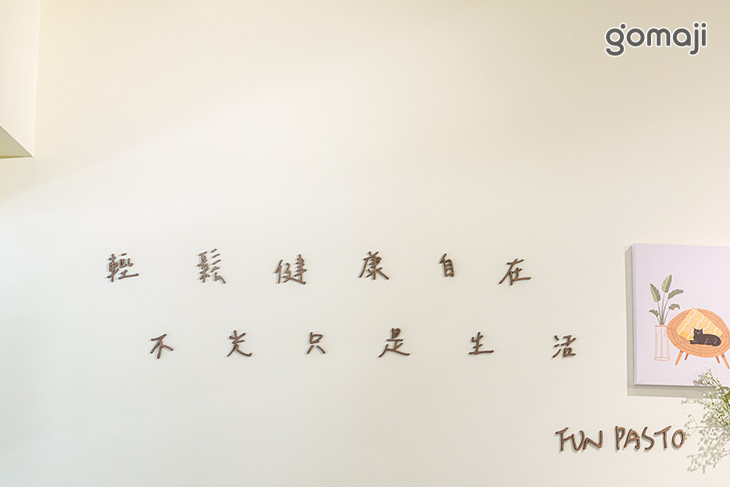 gomaji
輕鬆健康自在
不光只是生活
FUN PASTO